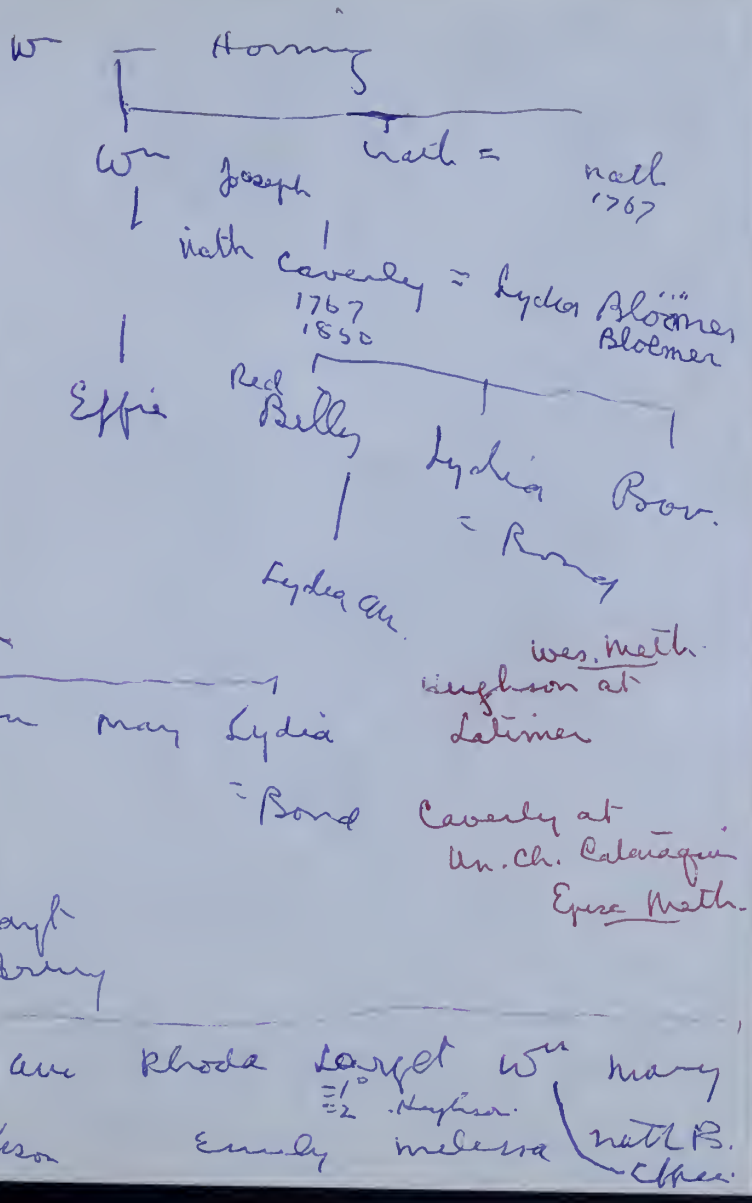 Wm — Horning
Wm Joseph Nath = Nath
1767
Nath Caverly = Lydia Bloomer
1767
1850
Bloemer
Effie Red Billy Lydia Bov.
=
Lydia Ann.
Wes. Meth.
Hughson at
Latimer
May Lydia
= Bond
Caverly at
Un. Ch. Cataraqui
Episc Meth.
Army
Ann Rhoda Target Wm Mary
=1°
=2 Hughson.
Emily Melissa Nath B.
Effie.